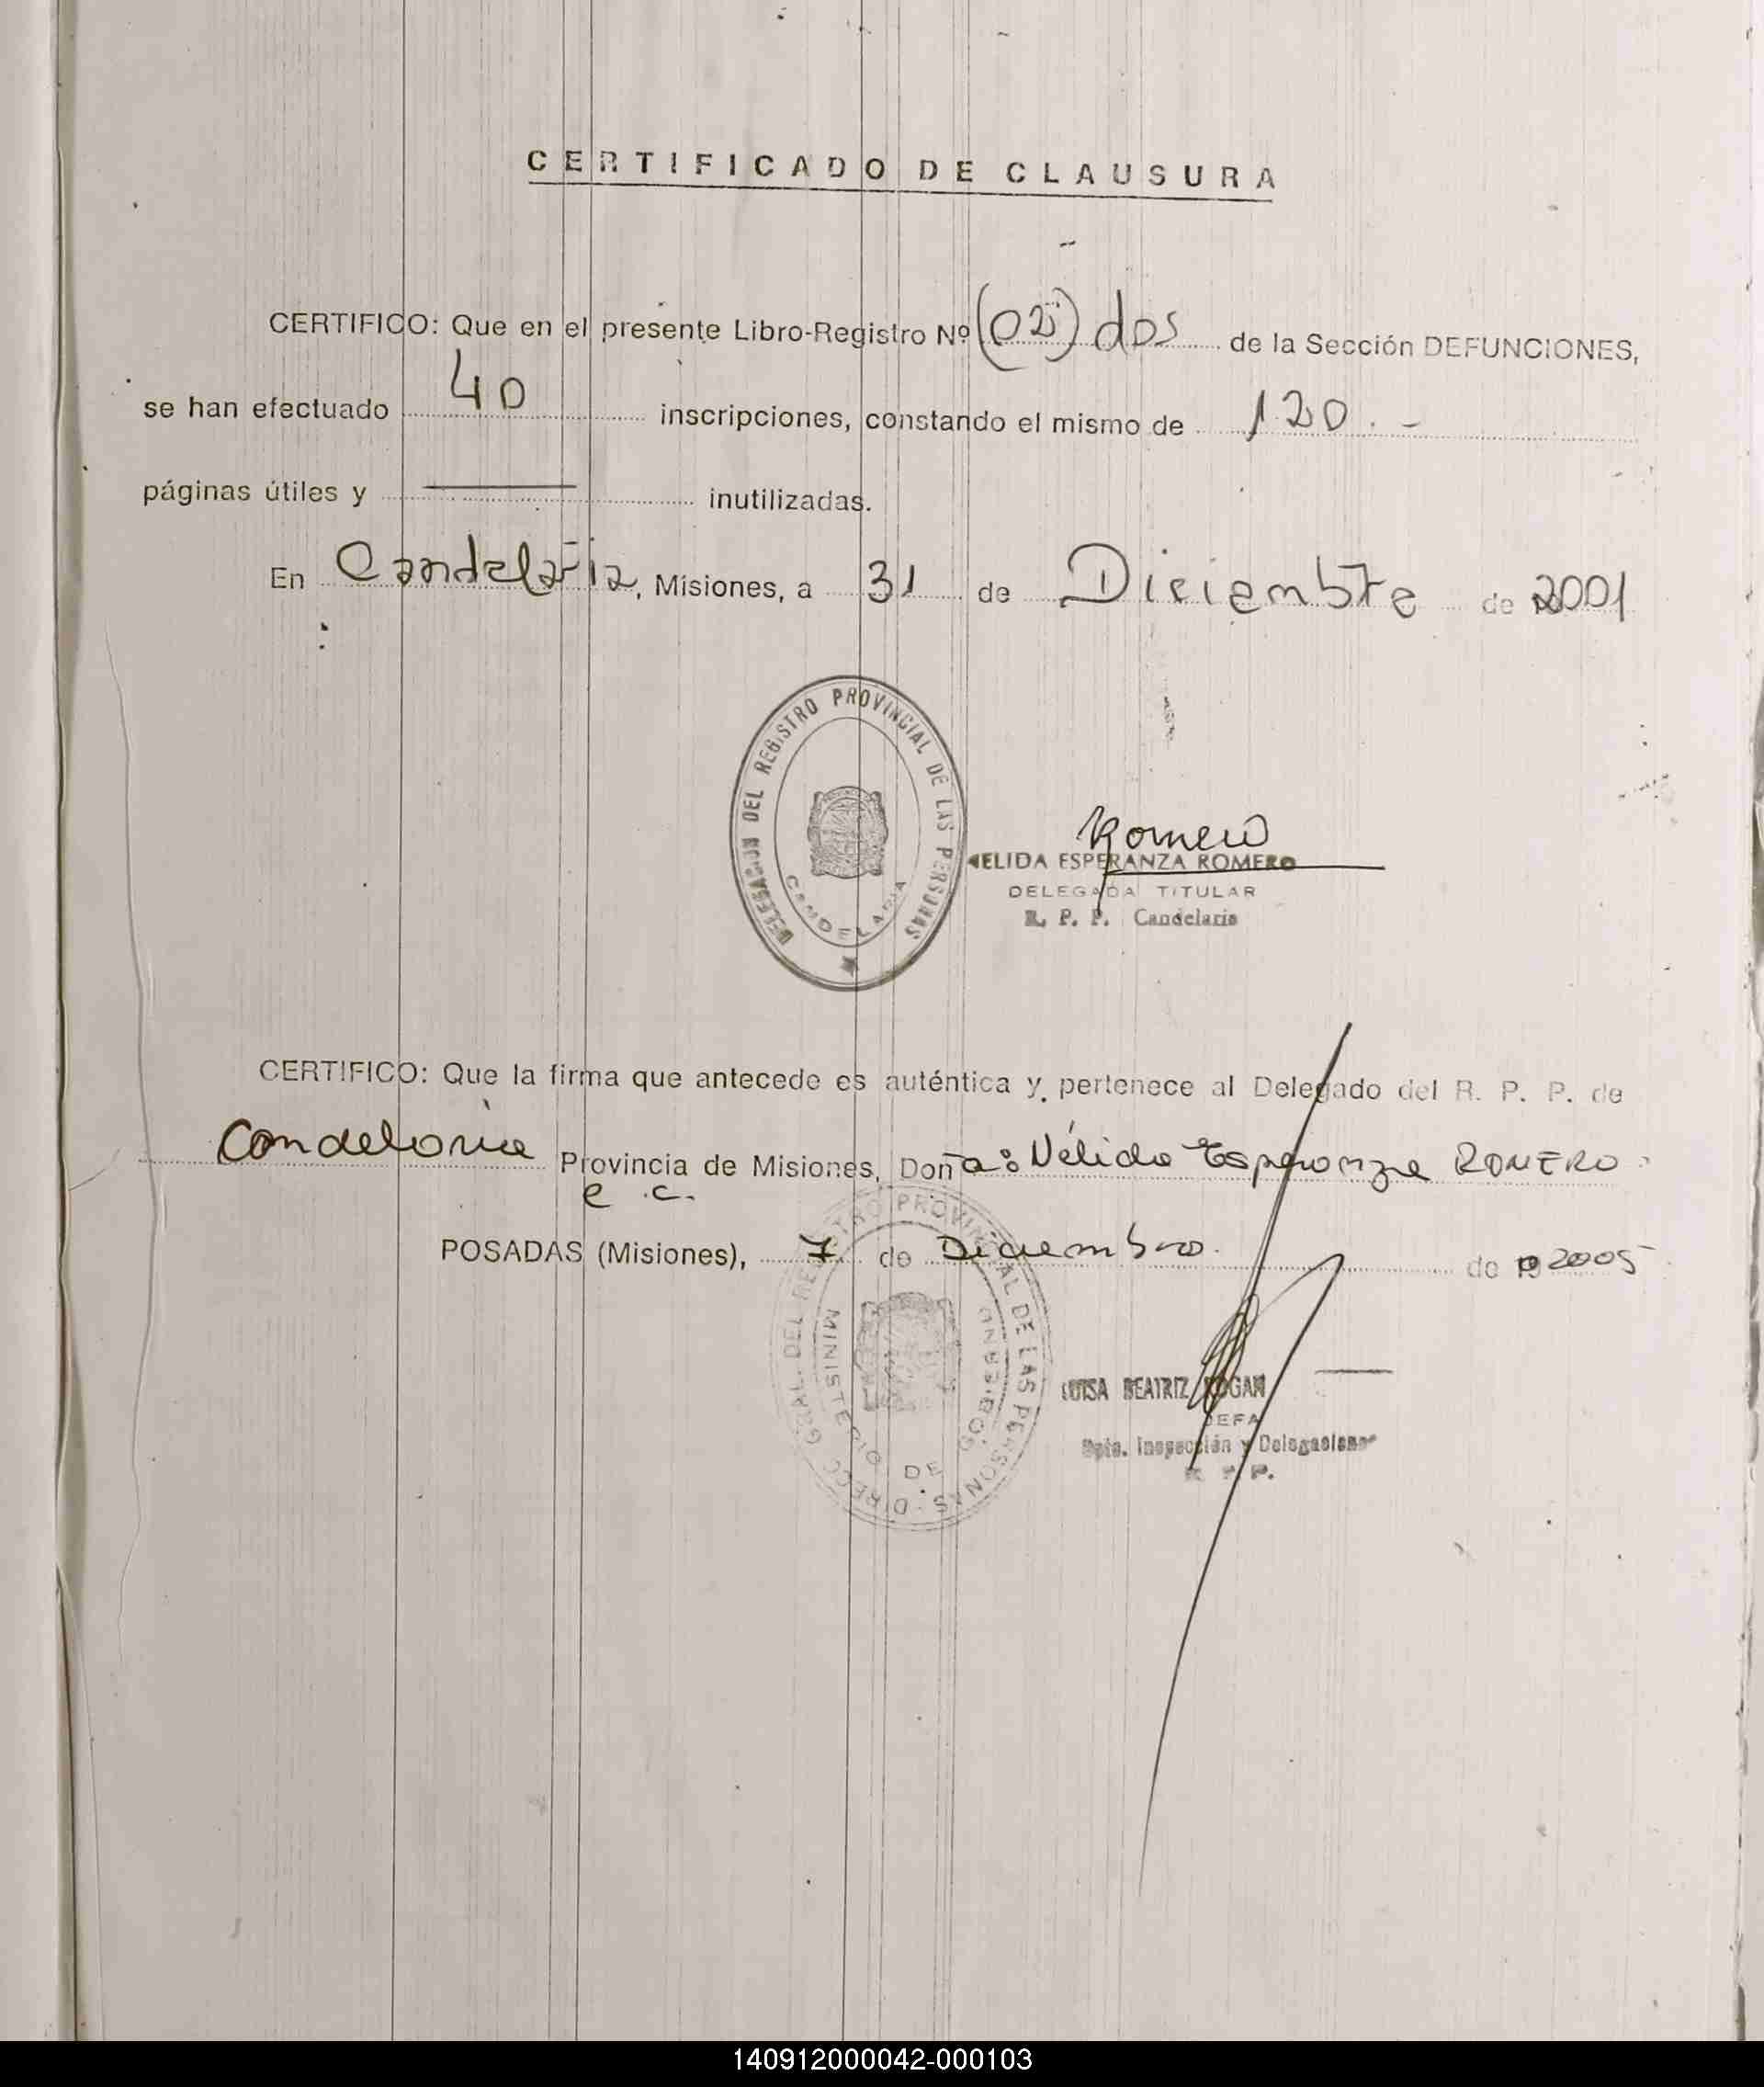 CERTIFICADO DE CLAUSURA
CERTIFICO: Que en el presente Libro-Registro Nº (02) dos de la Sección DEFUNCIONES,
se han efectuado 40 inscripciones, constando el mismo de 120.-
páginas útiles y — inutilizadas.
En Candelaria, Misiones, a 31 de Diciembre de 2001
DELEGACION DEL REGISTRO PROVINCIAL DE LAS PERSONAS
CANDELARIA
Romero
NELIDA ESPERANZA ROMERO
DELEGADA TITULAR
R. P. P. Candelaria
CERTIFICO: Que la firma que antecede es auténtica y pertenece al Delegado del R. P. P. de
Candelaria Provincia de Misiones, Doña: Nélida Esperanza ROMERO.
e .c.
POSADAS (Misiones), 7 de Diciembre de 2005
DIRECC. GRAL. DEL REGISTRO PROVINCIAL DE LAS PERSONAS
MINISTERIO DE GOBIERNO
LUISA BEATRIZ
JEFA
Dpto. Inspección y Delegaciones
R. P. P.
140912000042-000103